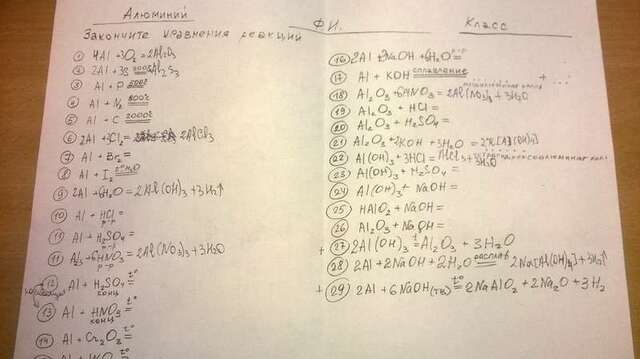 Алюминий Ф.И. Класс
Закончите уравнения реакций
1 4Al + 3O₂ = 2Al₂O₃
2 2Al + 3S 200°C = Al₂S₃
3 Al + P 500°C =
4 Al + N₂ 800°C =
5 Al + C 2000°C =
6 2Al + 3Cl₂ = 2AlCl₃
7 Al + Br₂ =
8 Al + I₂ t° H₂O =
9 2Al + 6H₂O = 2Al(OH)₃ + 3H₂↑
10 Al + HCl = р-р
11 Al + H₂SO₄ = р-р
11 + 6HNO₃ = 2Al(NO₃)₃ + 3H₂O р-р
12 Al + H₂SO₄ t° = конц
13 Al + HNO₃ t° = конц
14 Al + Cr₂O₃ t° =
16 2Al + 2NaOH + 6H₂O = р-р
17 Al + KOH сплавление = + ...
18 Al₂O₃ + 6HNO₃ = 2Al(NO₃)₃ + 3H₂O
19 Al₂O₃ + HCl =
20 Al₂O₃ + H₂SO₄ =
21 Al₂O₃ + 2KOH + 3H₂O = 2K[Al(OH)₄]
22 Al(OH)₃ + 3HCl = AlCl₃ + 3H₂O
23 Al(OH)₃ + H₂SO₄ =
24 Al(OH)₃ + NaOH =
25 HAlO₂ + NaOH =
26 Al₂O₃ + NaOH =
+ 27 2Al(OH)₃ t = Al₂O₃ + 3H₂O
28 2Al + 2NaOH + 2H₂O расплав = 2Na[Al(OH)₄] + 3H₂↑
+ 29 2Al + 6NaOH(тв) t° = 2NaAlO₂ + 2Na₂O + 3H₂